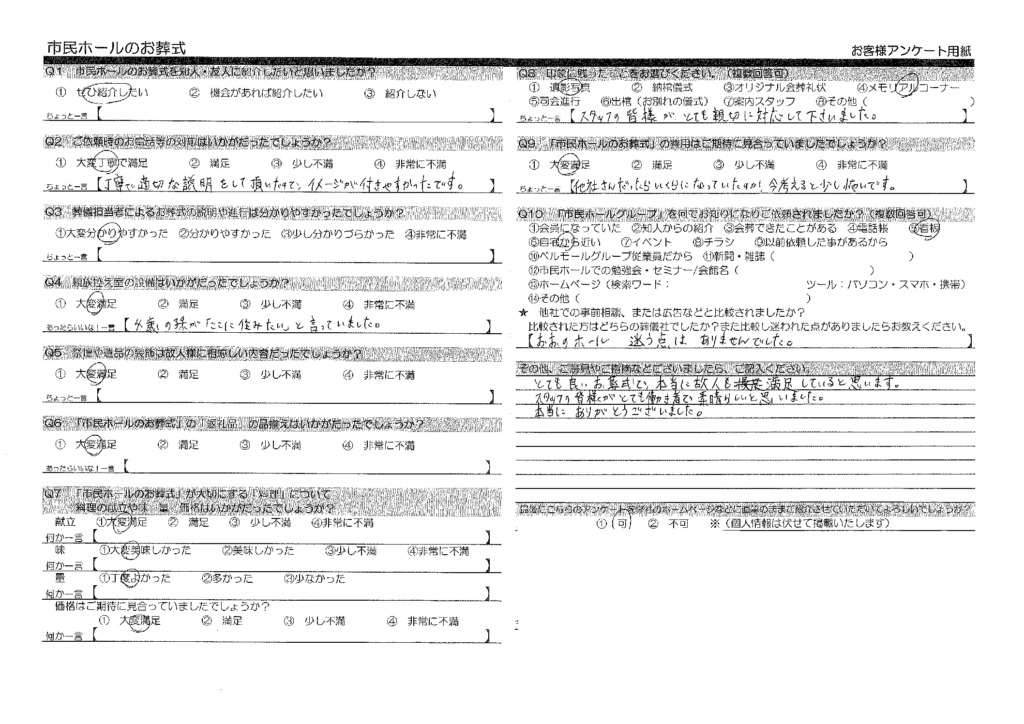 市民ホールのお葬式
お客様アンケート用紙
Q1 市民ホールのお葬式を知人・友人に紹介したいと思いましたか？
① ぜひ紹介したい ② 機会があれば紹介したい ③ 紹介しない
ちょっと一言【 】
Q2 ご依頼時のお電話等の対応はいかがだったでしょうか？
① 大変丁寧で満足 ② 満足 ③ 少し不満 ④ 非常に不満
ちょっと一言【丁寧で適切な説明をして頂いたので、イメージが付きやすかったです。】
Q3 葬儀担当者によるお葬式の説明や進行は分かりやすかったでしょうか？
①大変分かりやすかった ②分かりやすかった ③少し分かりづらかった ④非常に不満
ちょっと一言【 】
Q4 親族控え室の設備はいかがだったでしょうか？
① 大変満足 ② 満足 ③ 少し不満 ④ 非常に不満
あったらいいな！一言【 歳の孫が「ここに住みたい」と言っていました。】
Q5 祭壇や遺品の装飾は故人様に相応しい内容だったでしょうか？
① 大変満足 ② 満足 ③ 少し不満 ④ 非常に不満
ちょっと一言【 】
Q6 「市民ホールのお葬式」の「返礼品」の品揃えはいかがだったでしょうか？
① 大変満足 ② 満足 ③ 少し不満 ④ 非常に不満
あったらいいな！一言【 】
Q7 「市民ホールのお葬式」が大切にする「料理」について
料理の献立や味、量、価格はいかがだったでしょうか？
献立 ①大変満足 ② 満足 ③ 少し不満 ④非常に不満
何か一言【 】
味 ①大変美味しかった ②美味しかった ③少し不満 ④非常に不満
何か一言【 】
量 ①丁度よかった ②多かった ③少なかった
何か一言【 】
価格はご期待に見合っていましたでしょうか？
① 大変満足 ② 満足 ③ 少し不満 ④ 非常に不満
何か一言【 】
Q8 印象に残ったことをお選びください。（複数回答可）
① 遺影写真 ② 納棺儀式 ③オリジナル会葬礼状 ④メモリアルコーナー
⑤司会進行 ⑥出棺（お別れの儀式） ⑦案内スタッフ ⑧その他（ ）
ちょっと一言【スタッフの皆様が、とても親切に対応して下さいました。】
Q9 「市民ホールのお葬式」の費用はご期待に見合っていましたでしょうか？
① 大変満足 ② 満足 ③ 少し不満 ④ 非常に不満
ちょっと一言【他社さんだったらいくらになっていたのか、今考えると少し怖いです。】
Q10 「市民ホールグループ」を何でお知りになりご依頼されましたか？（複数回答可）
①会員になっていた ②知人からの紹介 ③会葬できたことがある ④電話帳 ⑤看板
⑥自宅から近い ⑦イベント ⑧チラシ ⑨以前依頼した事があるから
⑩ベルモールグループ従業員だから ⑪新聞・雑誌（ ）
⑫市民ホールでの勉強会・セミナー/会館名（ ）
⑬ホームページ（検索ワード： ツール：パソコン・スマホ・携帯）
⑭その他（ ）
★ 他社での事前相談、または広告などと比較されましたか？
比較された方はどちらの葬儀社でしたか？また比較し迷われた点がありましたらお教えください。
【 ホール 迷う点は ありませんでした。】
その他、ご意見やご指摘などございましたら、ご記入ください。
とても良いお葬式で、本当に故人も 満足していると思います。
スタッフの皆様がとても働き者で素晴らしいと思いました。
本当に ありがとうございました。
最後にこちらのアンケートを弊社のホームページなどに直筆のままご紹介させていただいてよろしいでしょうか？
①（可） ② 不可 ※（個人情報は伏せて掲載いたします）